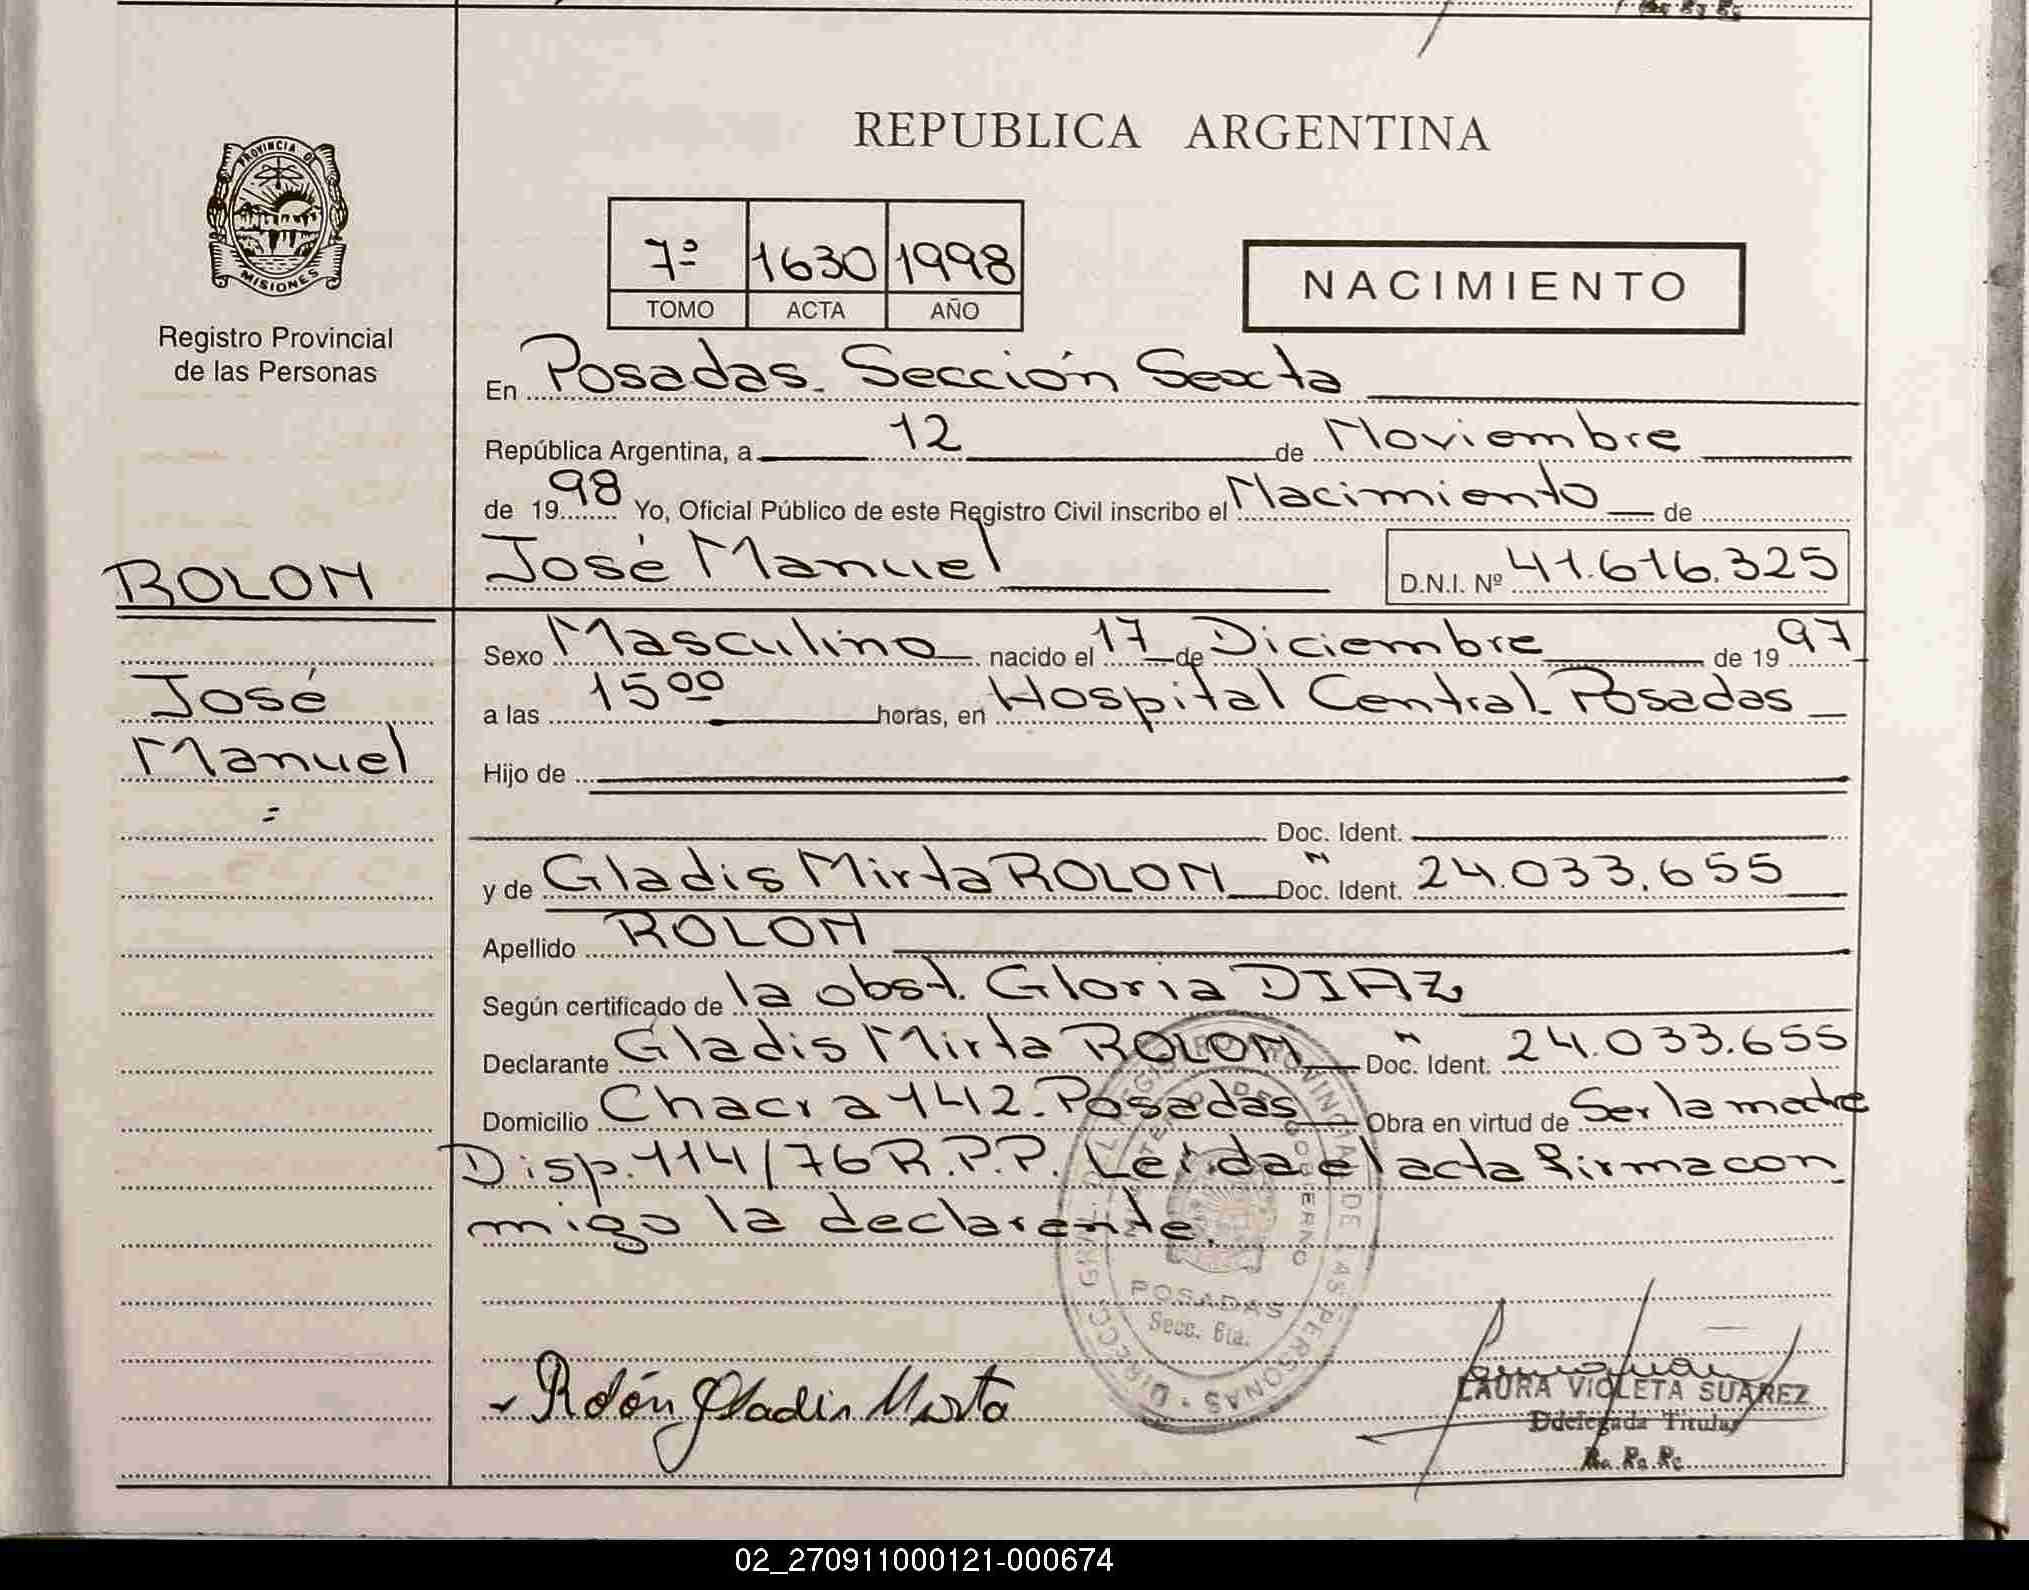 REPUBLICA ARGENTINA
PROVINCIA DE
MISIONES
Registro Provincial
de las Personas
7º 1630 1998
TOMO ACTA AÑO
NACIMIENTO
En Posadas. Sección Sexta
República Argentina, a 12 de Noviembre
de 1998 Yo, Oficial Público de este Registro Civil inscribo el Nacimiento de
José Manuel D.N.I. Nº 41.616.325
ROLON
José
Manuel
=
Sexo Masculino nacido el 17 de Diciembre de 1997
a las 15 00 horas, en Hospital Central Posadas
Hijo de
Doc. Ident.
y de Gladis Mirta ROLON Doc. Ident. M 24.033.655
Apellido ROLON
Según certificado de la obst. Gloria DIAZ
Declarante Gladis Mirta ROLON Doc. Ident. M 24.033.655
Domicilio Chacra 142. Posadas Obra en virtud de Ser la madre
Disp. 114/76 R.P.P. Leida el acta firma con
migo la declarante.
DIRECC. GRAL. DEL REGISTRO PROVINCIAL DE LAS PERSONAS
MINISTERIO DE GOBIERNO
POSADAS
Secc. 6ta.
Rolón Gladis Mirta
LAURA VIOLETA SUAREZ
Ddelegada Titular
R. P. P.
02_270911000121-000674